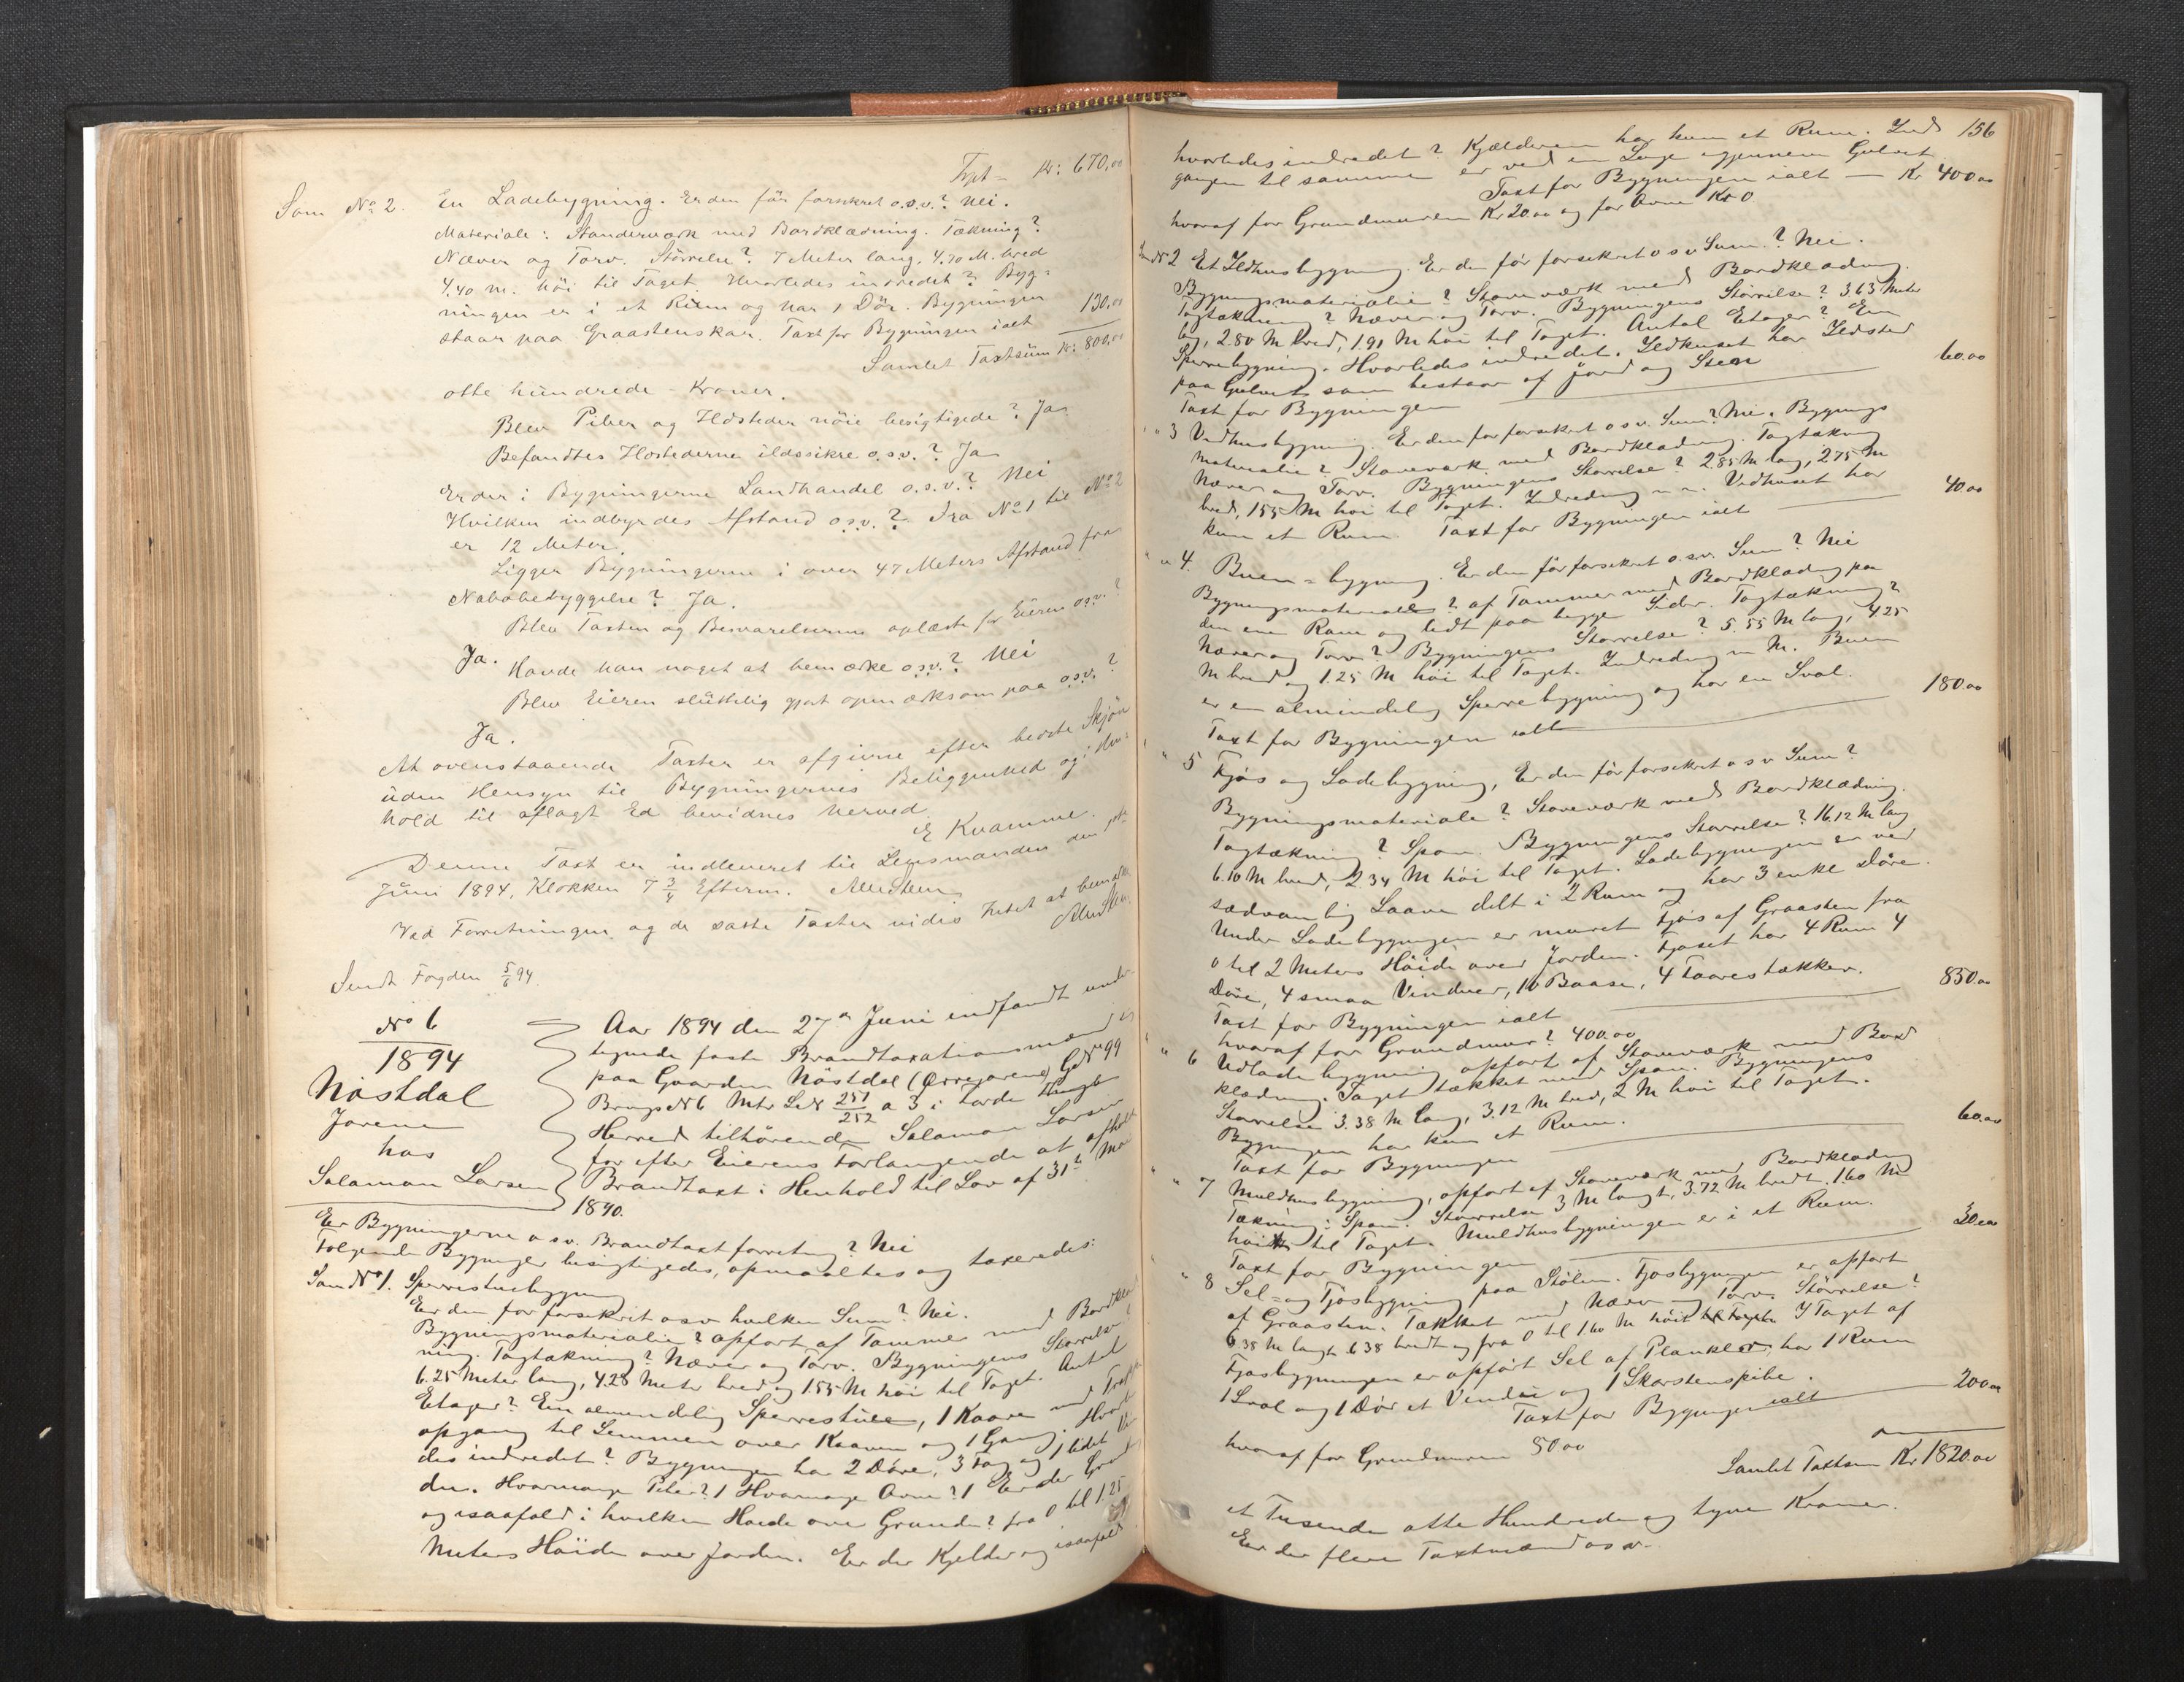 Trpt = Kr: 670,00
Som No 2. En Ladebygning. Er den för forsikret o.s.v.? Nei.
Materiale: Standerværk med Bordklædning. Tækning?
Næver og Torv. Störrelse? 7 Meter lang, 4,70 M. bred
4,40 m. höi til Taget. Hvorledes indredet? Byg=
ningen er i et Rüm og har 1 Dör. Bygningen
staar paa Graastenskar. Taxt for Bygningen ialt 130,00
Samlet Taxtsüm Kr: 800,00
otte hündrede - Kroner.
Blev Piber og Ildsteder nöie besigtigede? Ja
Befandtes Ildstederne ildssikre o.s.v.? Ja
Er der i Bygningerne Landhandel o.s.v.? Nei
Hvilken indbyrdes Afstand o.s.v.? Fra No 1 til No 2
er 12 Meter.
Ligger Bygningerne i over 47 Meters Afstand fra
Nabobebyggelse? Ja.
Blev Taxten og Besvarelserne oplæste for Eieren o.s.v.?
Ja.
Havde han noget at bemærke o.s.v.? Nei
Blev Eieren slüttelig gjort opmærksom paa o.s.v.?
Ja.
At ovenstaaende Taxter er afgivne efter bedste Skjön
üden Hensyn til Bygningernes Beliggenhed og i Hen=
hold til aflagt Ed bevidnes herved
E Kvamme.
Denne Taxt er indleveret til Legsmanden den
Jüni 1894, Klokken 7 3/4 Efterm.
Ved Forretningen og de satte Taxter vides Intet at bemærke
Sendt Fogden 5/6 94.
No 6
1894
Nöstdal
Jarene
hos
Salamon Larsen
Aar 1894 den 27de Juni indfandt under
tegnede faste Brandtaxationsmænd
paa Gaarden Nöstdal (Orrejarene) GdNo 99
Brugs No 6 Mtr Ld No 251/252 a 3 i
Herred tilhörende Salamon Larsen
for efter Eierens Forlangende at afholde
Brandtaxt i Henhold til Lov af 31te Mai
1890.
Er Bygningerne o s v. Brandtaxtforretning? Nei
Fölgende Bygninger besigtigedes, opmaaltes og taxeredes:
Som No 1. Sperrestuebygning
Er den for forsikret osv hvilken Sum? Nei.
Bygningsmateriale? opfört af Tömmer med Bordklæd
ning. Tagtækning? Næver og Torv. Bygningens Störrelse?
6.25 Meter lang, 4.28 Meter bred og 1.55 M höi til Taget. Antal
Etager? En almindelig Sperrestue, 1 Kaave med Trappe
opgang til Lemmen over Kaaven og 1 Gang. Hvorle
des indredet? Bygningen har 2 Döre, 3 Fag og 1 lidet Vin
due. Hvormange Piber? 1 Hvormange Ovne? 1 Er der Grund
og isaafald i hvilken Höide over Grunden? fra 0 til 1.25
Meters Höide over Jorden. Er der Kjelder og isaafald
156
hvorledes indredet? Kjælderen har kun et Rum. Ind
gangen til samme er ved en Luge igjennem Gulvet
Taxt for Bygningen ialt — Kr 400 00
hvoraf for Grundmuren Kr 20.00 og for Ovne Kr 0
Som No 2 Et Ildhusbygning. Er den för forsekret o s v Sum? Nei.
Bygningsmateriale? Staveværk med Bordklædning.
Tagtækning? Næver og Torv. Bygningens Störrelse? 3.63 Meter
lang, 2.80 M bred, 1.91 M höi til Taget. Antal Etager? En
Sperrebygning. Hvorledes indredet. Ildhuset har Ildsted
paa Gulvet som bestaar af Jord og Sten
Taxt for Bygningen 60.00
" " 3 Vedhusbygning. Er den för forsekret o s v. Sum? Nei. Bygnings
materialie? Staveværk med Bordklædning. Tagtækning
Næver og Torv. Bygningens Störrelse? 2.85 M lang, 2.75 M
bred, 1.55 M höi til Taget. Indredning m m. Vedhuset har
kun et Rum. Taxt for Bygningen ialt 40.00
" " 4. Buen=bygning. Er den för forsekret o.s.v. Sum? Nei
Bygningsmateriale? af Tømmer med Bordklædning paa
den ene Ram og lidt paa begge Sider. Tagtækning?
Næver og Torv? Bygningens Störrelse? 5.55 M lang, 4.25
M bred og 1.25 M höi til Taget. Indredning m M. Buen
er en almindelig Sperrebygning og har en Sval.
Taxt for Bygningen ialt 180.00
" 5 Fjös og Ladebygning, Er den för forsekret o s v Sum?
Bygningsmateriale? Staveværk med Bordklædning.
Tagtækning? Spon. Bygningens Störrelse? 16.12 M lang
6.10 M bred, 2.34 M höi til Taget. Ladebygningen er ved
sædvanlig Laave delt i 2 Rum og har 3 enke Döre.
Under Ladebygningen er muret Fjös af Graasten fra
0 til 2 Meters Höide over Jorden. Fjöset har 4 Rum 4
Döre, 4 smaa Vinduer, 10 Baase, 4 Faarestækker.
Taxt for Bygningen ialt 850.00
hvoraf for Grundmur? 400.00
" 6 Udladebygning opfört af Staveværk med Bord
klædning. Taget tækket med Spon. Bygningens
Störrelse 3.38 M lang, 3.12 M bred, 2 M höi til Taget.
Bygningen har kun et Rum.
Taxt for Bygningen 60.00
" 7 Muldhusbygning, opfört af Staveværk med Bordklædning
Tækning: Spon. Störrelse 3 M langt, 3.72 M bredt. 1.60 M
höit til Taget. Muldhusbygningen er i et Rum.
Taxt for Bygningen 30.00
" 8 Sel= og Fjösbygning paa Stölen. Fjösbygningen er opfört
af Graasten. Tækket med Næver og Torv. Störrelse?
6.38 M langt 6.38 bredt og fra 0 til 1.60 M höit til Taget. I Taget af
Fjösbygningen er opfört Sel af Planker, har 1 Rum
1 Sval og 1 Dör et Vindu og 1 Skorstenspibe.
Taxt for Bygningen ialt 200 00
hvoraf for Grundmuren 50 00
Samlet Taxtsum Kr 1820.00
et Tusende otte Hundrede og tyve Kroner.
Er der flere Taxtmænd o s v.